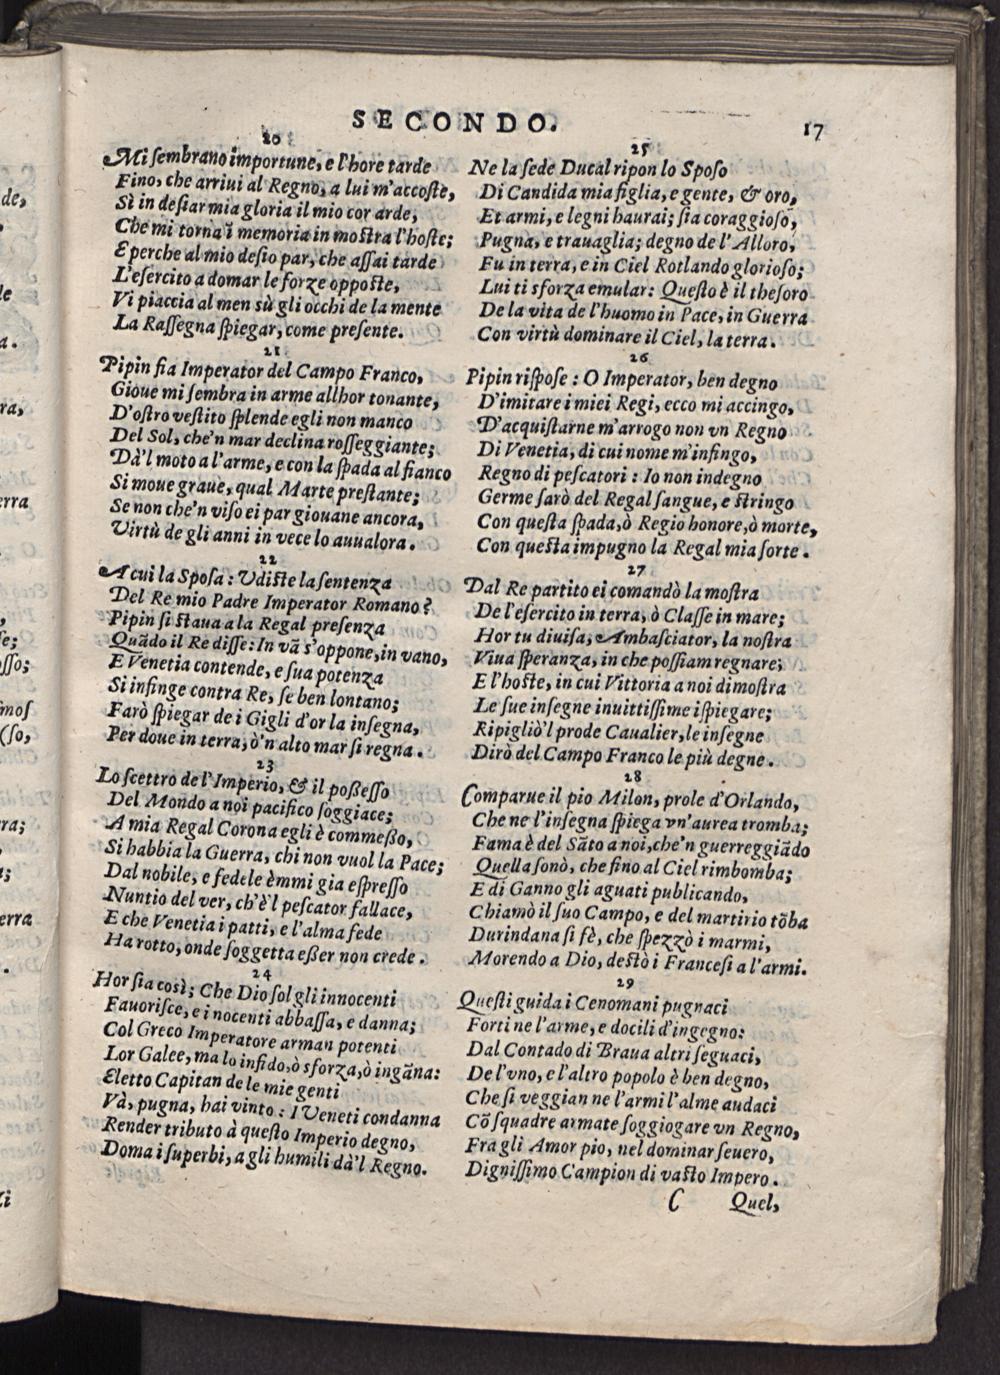 SECONDO. 17
20
Mi ſembrano importune, e l'hore tarde
Fino, che arriui al Regno, a lui m'accoſte,
Sì in deſiar mia gloria il mio cor arde,
Che mi torna ĩ memoria in moſtra l'hoſte;
E perche al mio deſio par, che aſſai tarde
L'eſercito a domar le forze oppoſte,
Vi piaccia al men sù gli occhi de la mente
La Raſſegna ſpiegar, come preſente.
21
Pipin fia Imperator del Campo Franco,
Gioue mi ſembra in arme allhor tonante,
D'oſtro veſtito ſplende egli non manco
Del Sol, che'n mar declina roſſeggiante;
Dà'l moto a l'arme, e con la ſpada al fianco
Si moue graue, qual Marte preſtante;
Se non che'n viſo ei par giouane ancora,
Virtù de gli anni in vece lo auualora.
22
A cui la Spoſa: Vdiſte la ſentenza
Del Re mio Padre Imperator Romano?
Pipin ſi ſtaua a la Regal preſenza
Quãdo il Re diſſe: In vã s'oppone, in vano,
E Venetia contende, e ſua potenza
Si infinge contra Re, ſe ben lontano;
Farò ſpiegar de i Gigli d'or la inſegna,
Per doue in terra, ò'n alto mar ſi regna.
23
Lo ſcettro de l'Imperio, & il poßeſſo
Del Mondo a noi pacifico ſoggiace;
A mia Regal Corona egli è commeßo,
Si habbia la Guerra, chi non vuol la Pace;
Dal nobile, e fedele èmmi gia eſpreſſo
Nuntio del ver, ch'è'l peſcator fallace,
E che Venetia i patti, e l'alma fede
Ha rotto, onde ſoggetta eßer non crede.
24
Hor ſia così; Che Dio ſol gli innocenti
Fauoriſce, e i nocenti abbaſſa, e danna;
Col Greco Imperatore arman potenti
Lor Galee, ma lo infido, ò sforza, ò ingãna:
Eletto Capitan de le mie genti
Và, pugna, hai vinto: I Veneti condanna
Render tributo à queſto Imperio degno,
Doma i ſuperbi, a gli humili dà'l Regno.
25
Ne la ſede Ducal ripon lo Spoſo
Di Candida mia figlia, e gente, & oro,
Et armi, e legni haurai; ſia coraggioſo,
Pugna, e trauaglia; degno de l'Alloro,
Fu in terra, e in Ciel Rotlando glorioſo;
Lui ti sforza emular: Queſto è il theſoro
De la vita de l'huomo in Pace, in Guerra
Con virtù dominare il Ciel, la terra.
26
Pipin riſpoſe: O Imperator, ben degno
D'imitare i miei Regi, ecco mi accingo,
D'acquiſtarne m'arrogo non vn Regno
Di Venetia, di cui nome m'infingo,
Regno di peſcatori: Io non indegno
Germe ſarò del Regal ſangue, e ſtringo
Con queſta ſpada, ò Regio honore, ò morte,
Con queſta impugno la Regal mia ſorte.
27
Dal Re partito ei comandò la moſtra
De l'eſercito in terra, ò Claſſe in mare;
Hor tu diuiſa, Ambaſciator, la noſtra
Viua ſperanza, in che poſſiam regnare;
E l'hoſte, in cui Vittoria a noi dimoſtra
Le ſue inſegne inuittiſſime iſpiegare;
Ripigliò'l prode Caualier, le inſegne
Dirò del Campo Franco le più degne.
28
Comparue il pio Milon, prole d'Orlando,
Che ne l'inſegna ſpiega vn'aurea tromba;
Fama è del Sãto a noi, che'n guerreggiãdo
Quella ſonò, che fino al Ciel rimbomba;
E di Ganno gli aguati publicando,
Chiamò il ſuo Campo, e del martirio tõba
Durindana ſi fè, che ſpezzò i marmi,
Morendo a Dio, deſtò i Franceſi a l'armi.
29
Queſti guida i Cenomani pugnaci
Forti ne l'arme, e docili d'ingegno:
Dal Contado di Braua altri ſeguaci,
De l'vno, e l'altro popolo è ben degno,
Che ſi veggian ne l'armi l'alme audaci
Cõ ſquadre armate ſoggiogare vn Regno,
Fra gli Amor pio, nel dominar ſeuero,
Digniſſimo Campion di vaſto Impero.
C Quel,